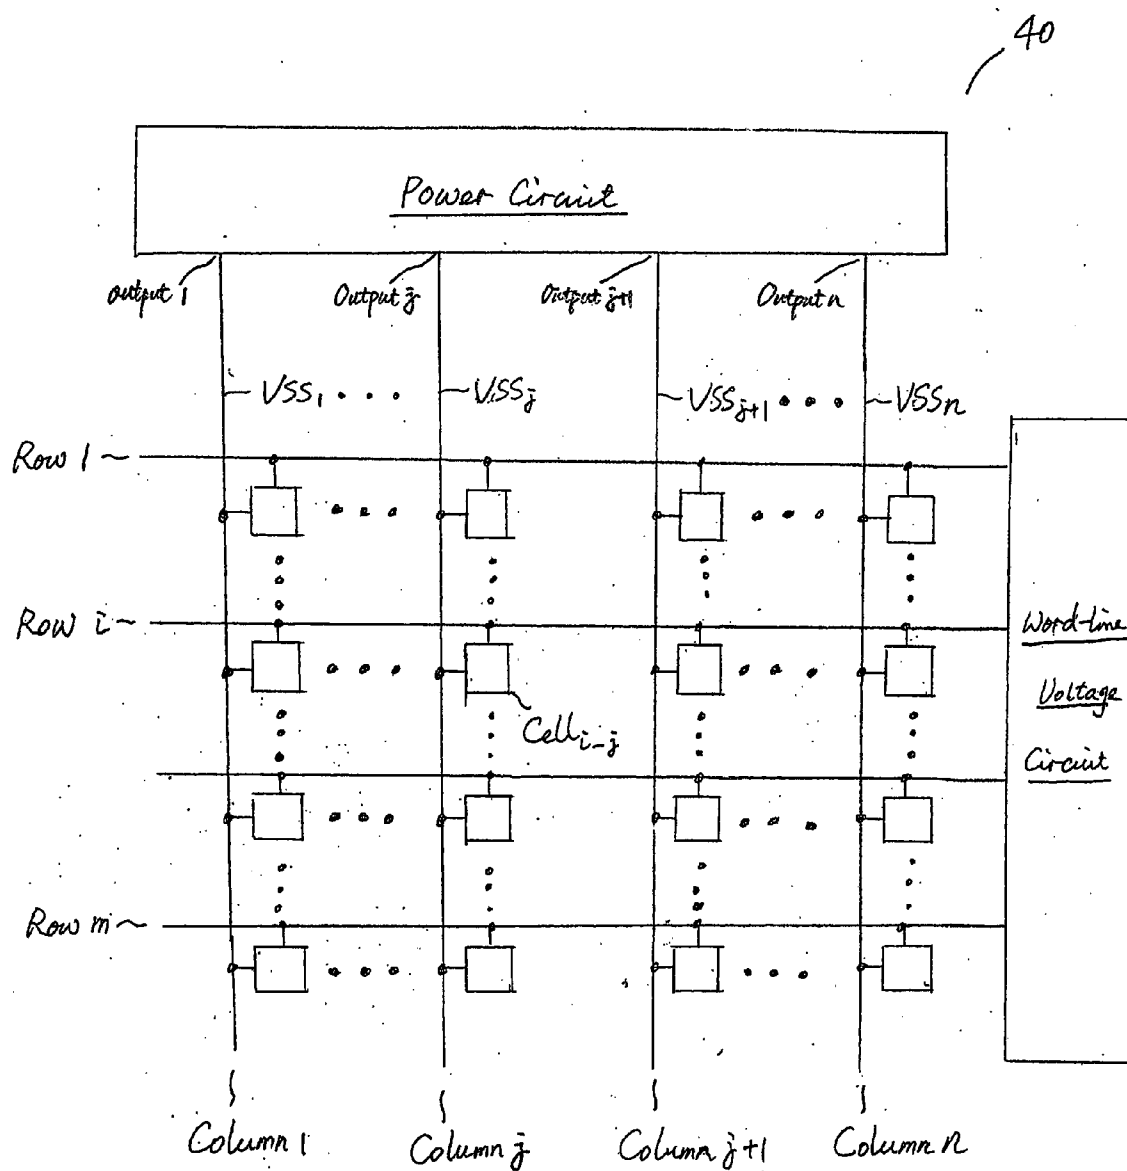 40
Power Circuit
output 1
Output j
Output j+1
Output n
VSS1 • • •
VSSj
VSSj+1 • • •
VSSn
Row 1 ~
Row i ~
Word-line
Voltage
Circuit
Cell i-j
Row m ~
Column 1
Column j
Column j+1
Column n